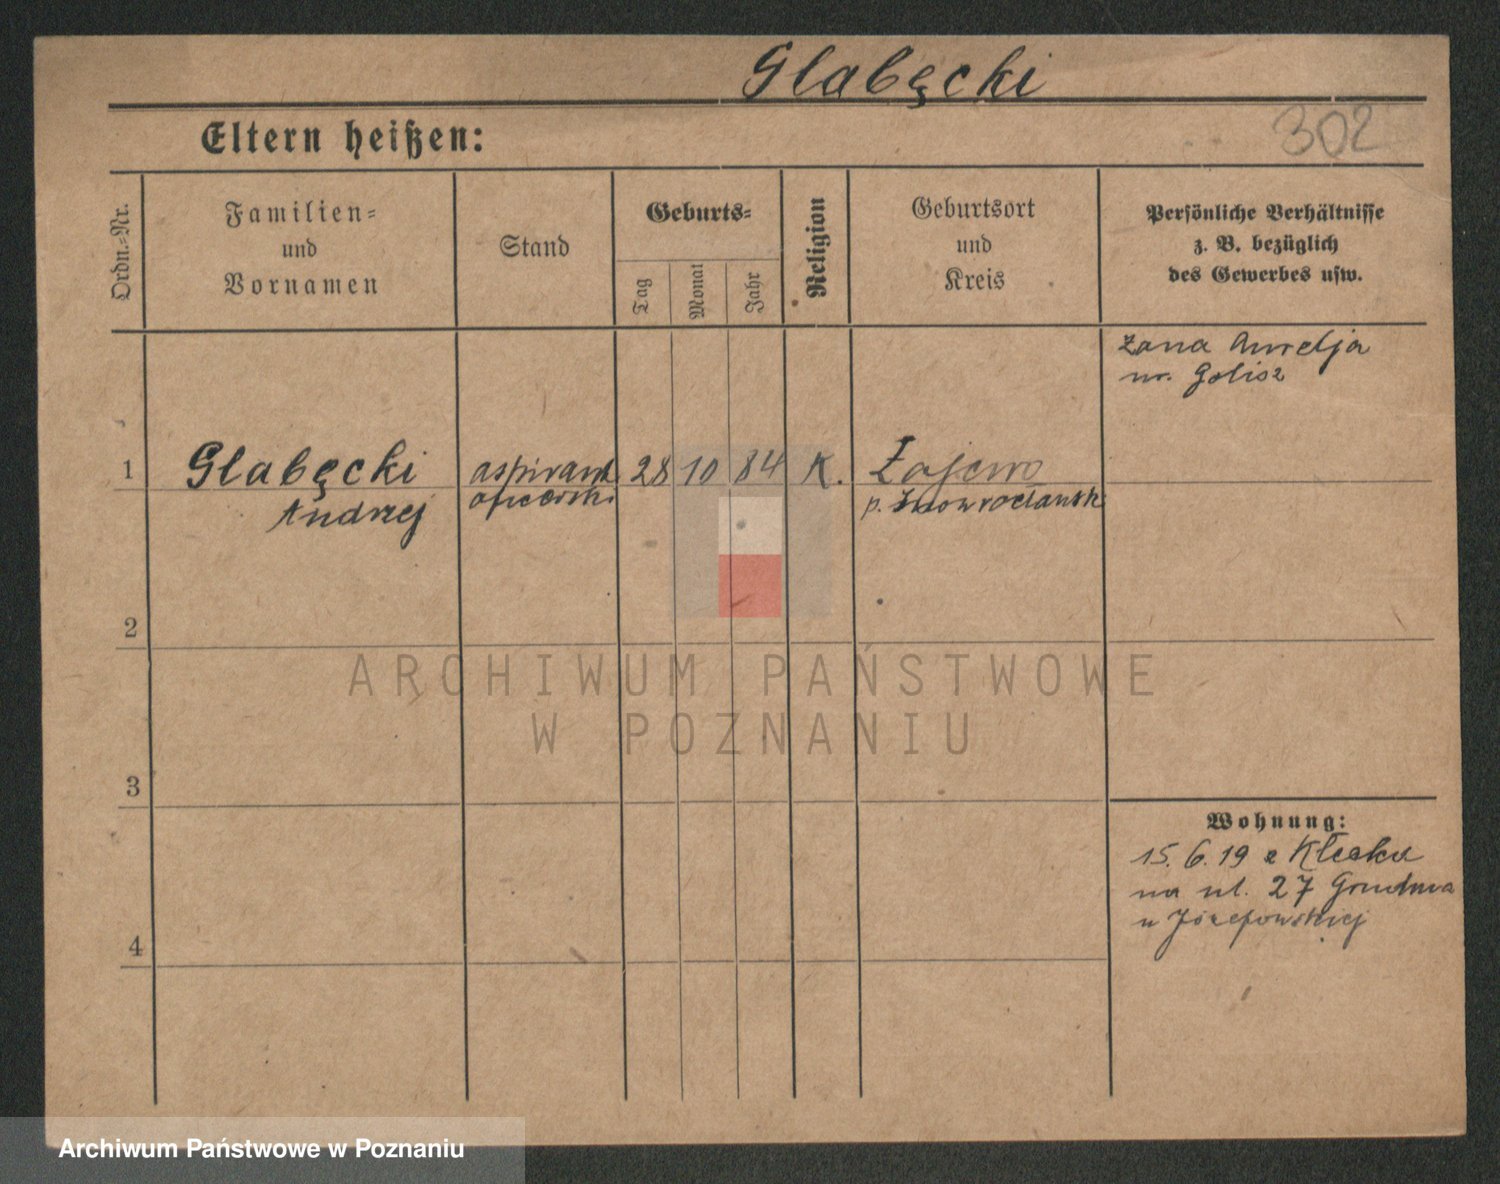 Glabęcki
302
Eltern heißen:
Ordn.-Nr.
Familien-
und
Vornamen
Stand
Geburts-
Tag
Monat
Jahr
Religion
Geburtsort
und
Kreis
Persönliche Verhältnisse
z. B. bezüglich
des Gewerbes usw.
żona Aurelja
ur. Golisz
1
Glabęcki
Andrzej
aspirant
oficerski
28
10
84
K.
p. Inowrocławsk
2
3
4
Wohnung:
15. 6. 19 z Kłecka
na ul. 27 Grudnia
u Józefowskiej
ARCHIWUM PAŃSTWOWE
W POZNANIU
Archiwum Państwowe w Poznaniu